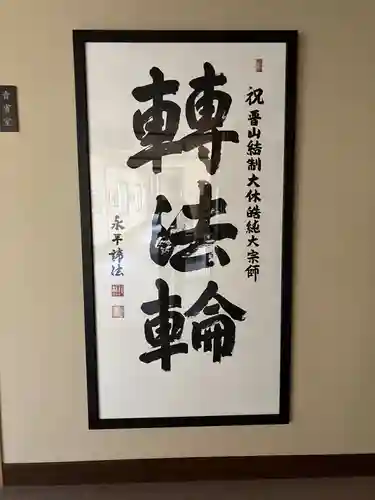 祝晋山結制大休皓純大宗師
轉法輪
永平諦法